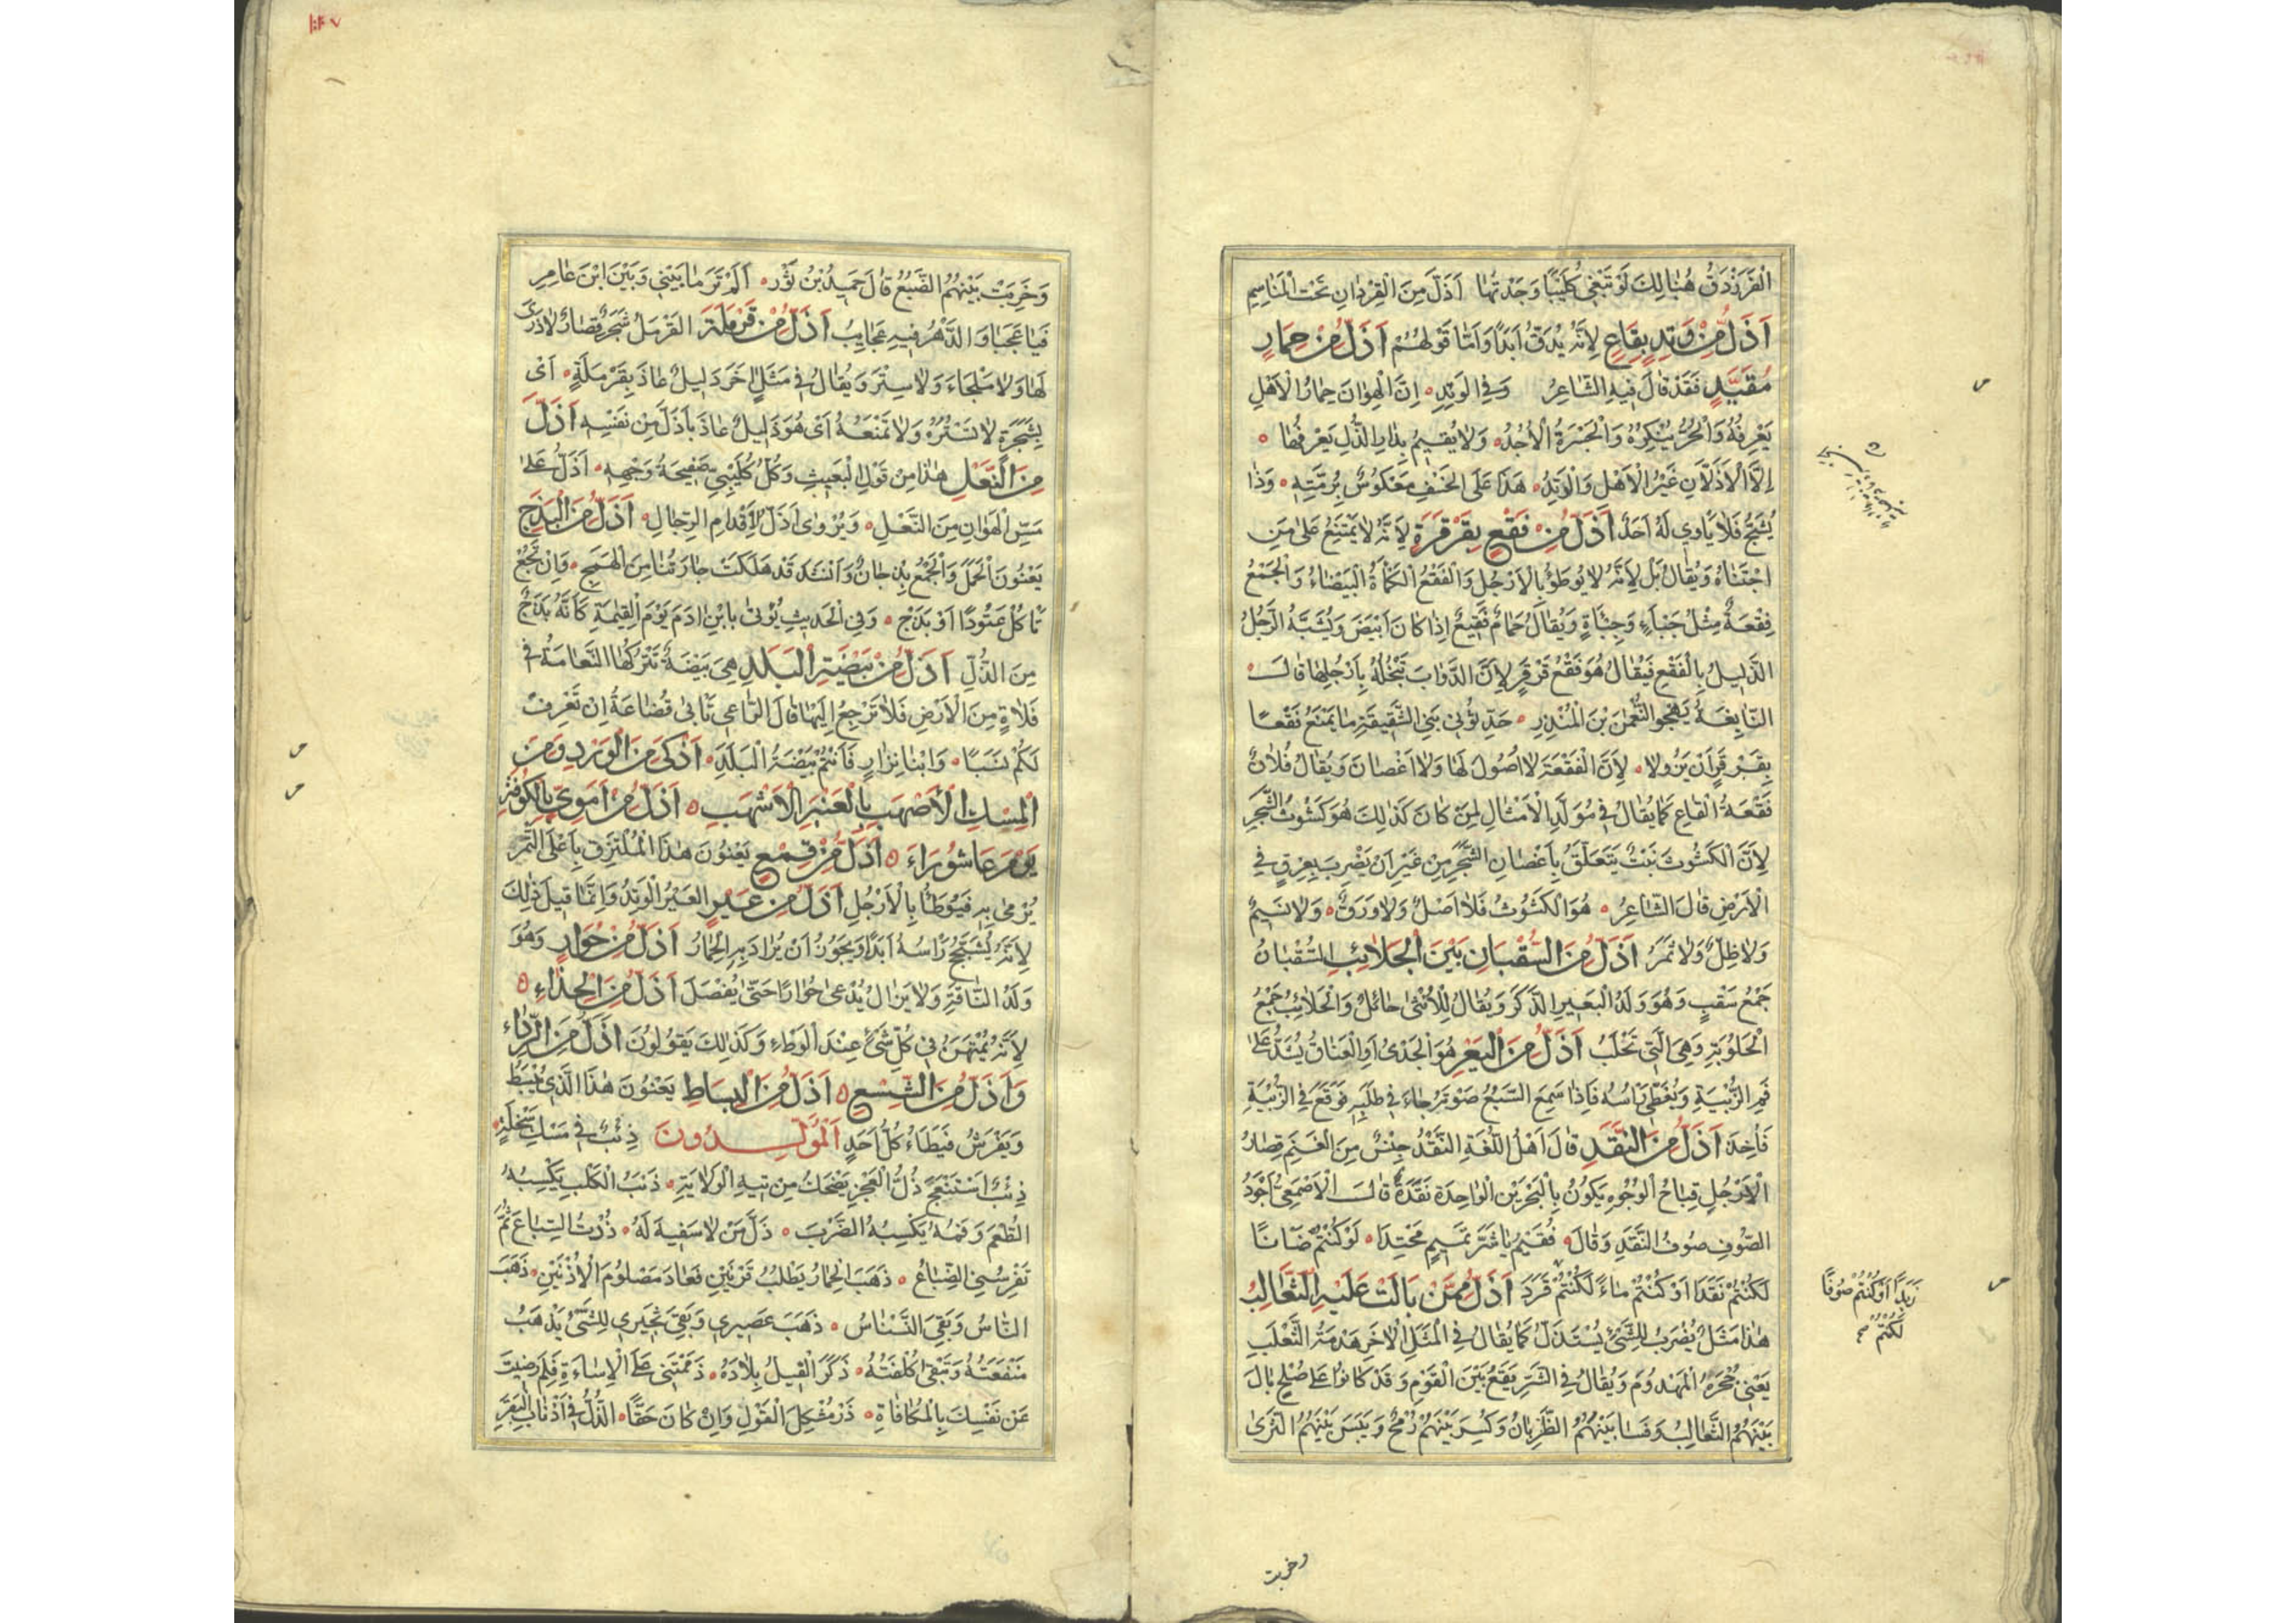 الْفَرَزْدَقُ هُنَالِكَ لَوْ تَبْغِي كُلَيْبًا وَجَدْتَهَا اَذَلَّ مِنَ الْقِرْدَانِ تَحْتَ الْمَنَاسِمِ
اَذَلُّ مِنْ وَتِدٍ بِقَاعٍ لِاَنَّهُ يُدَقُّ اَبَدًا وَاَمَّا قَوْلُهُمْ اَذَلُّ مِنْ حِمَارٍ
مُقَيَّدٍ فَقَدْ قَالَ فِيهِ الشَّاعِرُ وَفِي الْوَتِدِ اِنَّ الْهَوَانَ حِمَارُ الْاَهْلِ
يَعْرِفُهُ وَالْحُرُّ يُنْكِرُهُ وَالْجَسْرَةُ الْاُجُدُ وَلَا يُقِيمُ بِدَارِ الذُّلِّ يَعْرِفُهَا
اِلَّا الْاَذَلَّانِ عَيْرُ الْاَهْلِ وَالْوَتِدُ هَذَا عَلَى الْخَسْفِ مَعْكُوسٌ بِرُمَّتِهِ وَذَا
يُشَجُّ فَلَا يَاوِي لَهُ اَحَدٌ اَذَلُّ مِنْ فَقْعٍ بِقَرْقَرَةٍ لِاَنَّهُ لَا يَمْتَنِعُ عَلَى مَنِ
اجْتَنَاهُ وَيُقَالُ بَلْ لِاَنَّهُ لَا يُوطَؤُ بِالْاَرْجُلِ وَالْفَقْعُ الْكَمْاَةُ الْبَيْضَاءُ وَالْجَمْعُ
فِقَعَةٌ مِثْلُ جَبْاءٍ وَجِبَاَةٍ وَيُقَالُ حَمَامٌ فَقِيعٌ اِذَا كَانَ اَبْيَضَ وَيُشَبَّهُ الرَّجُلُ
الذَّلِيلُ بِالْفَقْعِ فَيُقَالُ هُوَ فَقْعُ قَرْقَرٍ لِاَنَّ الدَّوَابَّ تَنْجُلُهُ بِاَرْجُلِهَا قَالَ
النَّابِغَةُ يَهْجُو النُّعْمَنَ بْنَ الْمُنْذِرِ حَدِّثُونِي بَنِي الشَّقِيقَةِ مَا يَمْنَعُ فَقْعًا
بِقَرْقَرٍ اَنْ يَزُولَا لِاَنَّ الْفَقْعَةَ لَا اُصُولَ لَهَا وَلَا اَغْصَانَ وَيُقَالُ فُلَانٌ
فَقْعَةُ الْقَاعِ كَمَا يُقَالُ فِي مُوَلَّدِ الْاَمْثَالِ لِمَنْ كَانَ كَذَلِكَ هُوَ كَشُوثُ الشَّجَرِ
لِاَنَّ الْكَشُوثَ نَبْتٌ يَتَعَلَّقُ بِاَغْصَانِ الشَّجَرِ مِنْ غَيْرِ اَنْ يَضْرِبَ بِعِرْقٍ فِي
الْاَرْضِ قَالَ الشَّاعِرُ هُوَ الْكَشُوثُ فَلَا اَصْلٌ وَلَا وَرَقٌ وَلَا نَسِيمٌ
وَلَا ظِلٌّ وَلَا ثَمَرُ اَذَلُّ مِنَ السُّقْبَانِ بَيْنَ الْحَلَائِبِ السُّقْبَانُ
جَمْعُ سَقْبٍ وَهُوَ وَلَدُ الْبَعِيرِ الذَّكَرُ وَيُقَالُ لِلْاُنْثَى حَائِلٌ وَالْحَلَائِبُ جَمْعُ
الْحَلُوبَةِ وَهِيَ الَّتِي تَحْلَبُ اَذَلُّ مِنَ الْيَعْرِ هُوَ الْجَدْيُ اَوِ الْعَنَاقُ يُشَدُّ عَلَى
فَمِ الزُّبْيَةِ وَيُغَطَّى رَاسُهُ فَاِذَا سَمِعَ السَّبُعُ صَوْتَهُ جَاءَ فِي طَلَبِهِ فَوَقَعَ فِي الزُّبْيَةِ
فَاُخِذَ اَذَلُّ مِنَ النَّقَدِ قَالَ اَهْلُ اللُّغَةِ النَّقَدُ جِنْسٌ مِنَ الْغَنَمِ قِصَارُ
الْاَرْجُلِ قِبَاحُ الْوُجُوهِ يَكُونُ بِالْبَحْرَيْنِ الْوَاحِدَةُ نَقَدَةٌ قَالَ الْاَصْمَعِيُّ اَجْوَدُ
الصُّوفِ صُوفُ النَّقَدِ وَقَالَ فُقَيْمُ يَا شَرَّ تَمِيمٍ مَحْتِدَا لَوْ كُنْتُمُ ضَانًا
لَكُنْتُمْ نَقَدَا اَوْ كُنْتُمْ مَاءً لَكُنْتُمْ قَرَدَ اَذَلُّ مِمَّنْ بَالَتْ عَلَيْهِ الثَّعَالِبُ
هٰذَا مَثَلٌ يُضْرَبُ لِلشَّيْءِ يُسْتَذَلُّ كَمَا يُقَالُ فِي الْمَثَلِ الْاٰخَرِ هَدْمَةُ الثَّعْلَبِ
يَعْنِي جُحْرَهُ الْمَهْدُومَ وَيُقَالُ فِي الشَّرِّ يَقَعُ بَيْنَ الْقَوْمِ وَقَدْ كَانُوا عَلَى صُلْحٍ بَالَ
بَيْنَهُمُ الثَّعَالِبُ وَفَسَا بَيْنَهُمُ الظَّرِبَانُ وَكُسِرَ بَيْنَهُمْ رُمْحٌ وَيَبِسَ بَيْنَهُمُ الثَّرَى
زَبَدًا اَوْ كُنْتُمُ صُوفًا
لَكُنْتُمْ صح
وخربت
وَخَرِبَتْ بَيْنَهُمُ الضَّبُعُ قَالَ حُمَيْدُ بْنُ ثَوْرٍ اَلَمْ تَرَ مَا بَيْنِي وَبَيْنَ ابْنَ عَامِرِ
فَيَا عَجَبَا وَالدَّهْرُ فِيهِ عَجَايِبُ اَذَلُّ مِنْ قَرْمَلَةَ الْقَرْمَلُ شَجَرٌ قِصَارٌ لَا ذَرَى
لَهَا وَلَا مَلْجَاءَ وَلَا سِتْرَ وَيُقَالُ فِي مَثَلٍ اٰخَرَ ذَلِيلٌ عَاذَ بِقَرْمَلَةٍ اَيْ
بِشَجَرَةٍ لَا تَسْتُرُهُ وَلَا تَمْنَعُهُ اَيْ هُوَ ذَلِيلٌ عَاذَ بِاَذَلَّ مِنْ نَفْسِهِ اَذَلُّ
مِنَ النَّعْلِ هٰذَا مِنْ قَوْلِ الْبَعِيثِ وَكُلُّ كُلَيْبِيٍّ صَفِيحَةُ وَجْهِهِ اَذَلُّ عَلَى
مَسِّ الْهَوَانِ مِنَ النَّعْلِ وَيُرْوَى اَذَلُّ لِاَقْدَامِ الرِّجَالِ اَذَلُّ مِنَ الْبَذَجِ
يَعْنُونَ الْحَمَلَ وَالْجَمْعُ بِذْجَانٌ وَاَنْشَدَ قَدْ هَلَكَتْ جَارَتُنَا مِنَ الْهَمَجِ وَاِنْ تَجُعْ
تَاكُلْ عَتُودًا اَوْ بَذَجْ وَفِي الْحَدِيثِ يُؤْتَى بِابْنِ اٰدَمَ يَوْمَ الْقِيٰمَةِ كَاَنَّهُ بَذَجٌ
مِنَ الذُّلِّ اَذَلُّ مِنْ بَيْضَةِ الْبَلَدِ هِيَ بَيْضَةٌ تَتْرُكُهَا النَّعَامَةُ فِي
فَلَاةٍ مِنَ الْاَرْضِ فَلَا تَرْجِعُ اِلَيْهَا قَالَ الرَّاعِي تَابَى قُضَاعَةُ اِنْ تَعْرِفْ
لَكُمْ نَسَبًا وَابْنَا نِزَارٍ فَاَنْتُمْ بَيْضَةُ الْبَلَدِ اَذْكَى مِنَ الْوَرْدِ وَمِنَ
الْمِسْكِ الْاَصْهَبِ بِالْعَنْبَرِ الْاَشْهَبِ اَذَلُّ مِنْ اُمَوِيٍّ بِالْكُوفَةِ
يَوْمَ عَاشُورَاءَ اَذَلُّ مِنْ قِمَعٍ يَعْنُونَ هٰذَا الْمُلْتَزِقَ بِاَعْلَى التَّمْرِ
يُرْمَى بِهِ فَيُوطَاُ بِالْاَرْجُلِ اَذَلُّ مِنْ عَيْرٍ الْعَيْرُ الْوَتِدُ وَاِنَّمَا قِيلَ ذٰلِكَ
لِاَنَّهُ يُشَجَّجُ رَاسُهُ اَبَدًا وَيَجُوزُ اَنْ يُرَادَ بِهِ الْحِمَارُ اَذَلُّ مِنْ حُوَارٍ وَهُوَ
وَلَدُ النَّاقَةِ وَلَا يَزَالُ يُدْعَى حُوَارًا حَتَّى يُفْصَلَ اَذَلُّ مِنَ الْحِذَاءِ
لِاَنَّهُ يُمْتَهَنُ فِي كُلِّ شَيْءٍ عِنْدَ الْوَطْاءِ وَكَذَلِكَ يَقُولُونَ اَذَلُّ مِنَ الرِّدَاءِ
وَاَذَلُّ مِنَ الشِّسْعِ اَذَلُّ مِنَ الْبِسَاطِ يَعْنُونَ هٰذَا الَّذِي يُبْسَطُ
وَيُفْرَشُ فَيَطَاءُ كُلُّ اَحَدٍ اَلْمُوَلَّدُونَ ذِئْبٌ فِي مَسْكِ سَخْلَةٍ
ذِئْبٌ اسْتَنْعَجَ ذُلُّ الْعَجْزِ يَضْحَكُ مِنْ تِيهِ الْوَلَايَةِ ذَنَبُ الْكَلْبِ يَكْسِبُهُ
الطُّعْمَ وَفَمُهُ يَكْسِبُهُ الضَّرْبَ ذَلَّ مَنْ لَا سَفِيهَ لَهُ ذُرْتُ السِّبَاعَ ثُمَّ
تَفْرِسُنِي الضِّبَاعُ ذَهَبَ الْحِمَارُ يَطْلُبُ قَرْنَيْنِ فَعَادَ مَصْلُومَ الْاُذْنَيْنِ ذَهَبَ
النَّاسُ وَبَقِيَ النَّسْنَاسُ ذَهَبَ عَصِيرِي وَبَقِيَ ثَجِيرِي لِلشَّيْءِ يَذْهَبُ
مَنْفَعَتُهُ وَتَبْقَى كُلْفَتُهُ ذَكَرَ الْفِيلُ بِلَادَهُ ذَمَمْتَنِي عَلَى الْاِسَاءَةِ فَلِمَ رَضِيتَ
عَنْ نَفْسِكَ بِالْمُكَافَاةِ ذَرْ مُشْكِلَ الْقَوْلِ وَاِنْ كَانَ حَقًّا الذُّلُّ فِي اَذْنَابِ الْبَقَرِ